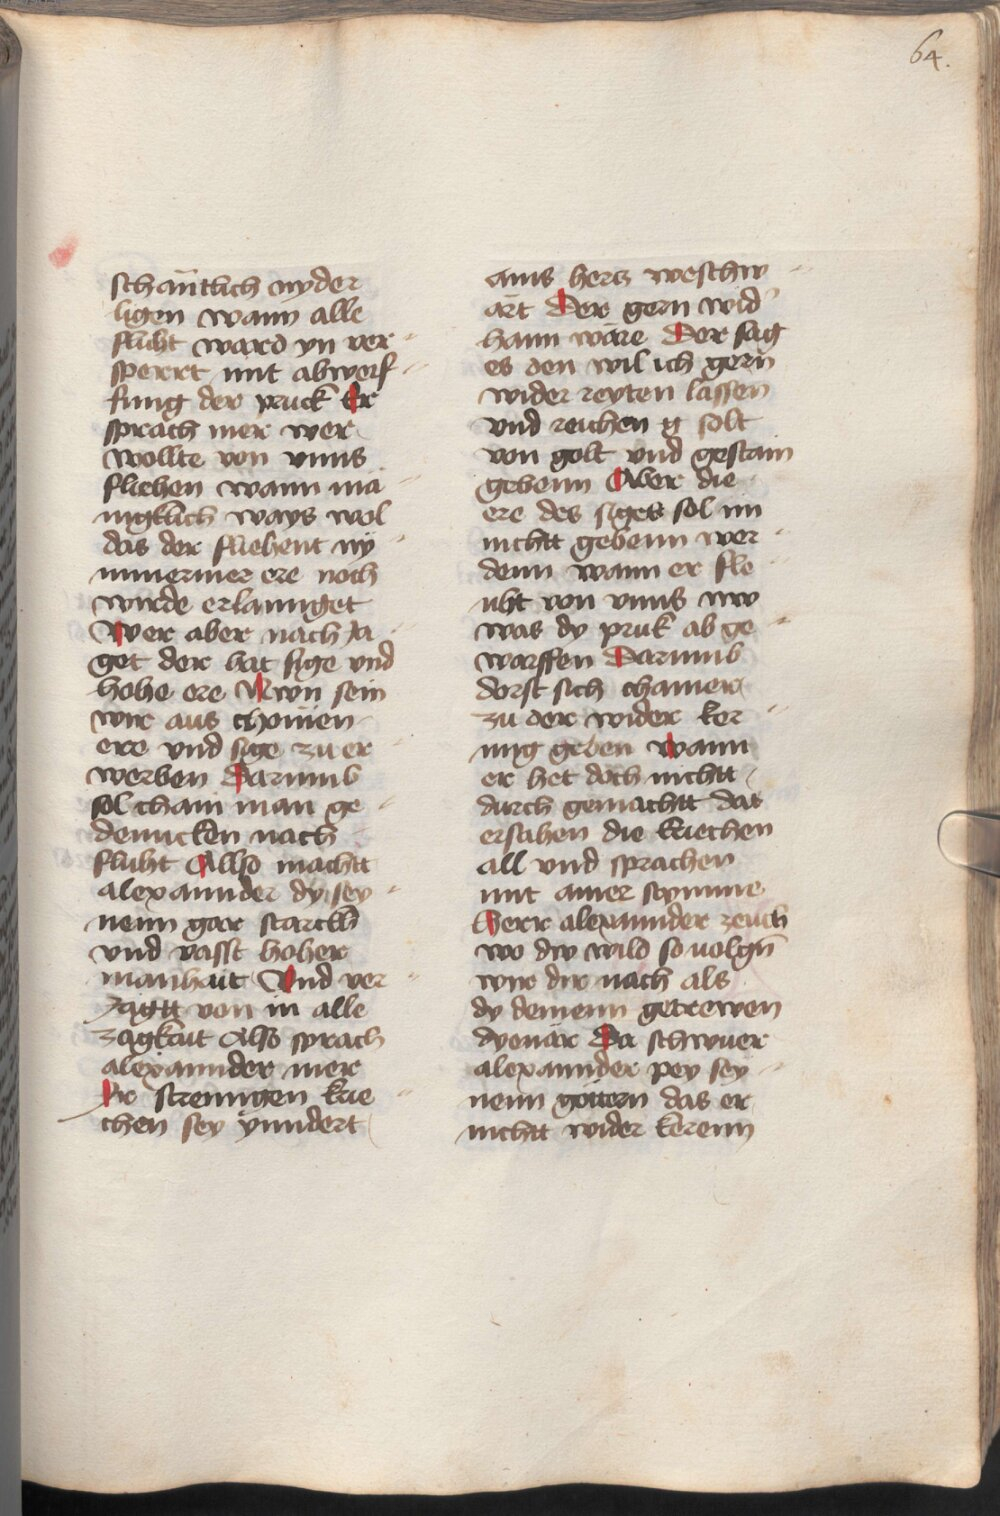 64.
schantlich nyder
ligen wann alle
flucht ward yn ver-
sperrt mit abwerf-
fung der pruck Er
sprach mer wer
wollte von unns
fliehen wann ma-
nigklich ways wol
das der fliehent ny-
mmermer ere noch
wirde erlannget
Wer aber nach Ja-
get der hat sige vnd
hohe ere Nwn sein
wir aus chomen
ere vnd sige zu er-
werben Darumb
sol chain man ge-
denncken nach
flucht Allso macht
alexannder dy sey-
nenn gar starckh
vnd vasst hoher
manhait Vnd ver-
Jagtt von in alle
zagkait Also sprach
alexannder mer
Ir strenngen krie-
chen sey ynndert
ains hertz weschw-
art Der gern wid'
hann ware Der sag
es den wil ich gern
wider reyten lassen
vnd reichen g solt
von golt vnd gestain
gebenn Aber die
ere des siges sol im
nichtt gebenn wer-
denn wann er fle-
uht von vnns nw
was dy pruk ab ge-
warffen Darumb
dorft sich chainer
zu der wider ker-
ung geben wann
er het doch nichtt
durch gemachtt das
ersahen die kriechen
all vnd sprachen
mit ainer stymme
Herr alexannder zeuch
wo dw wild so uolgn
wir dir nach als
dy deinenn getrewen
dyenar Da schwuer
alexannder pey sey-
nenn göttern das er
nichtt wider kerenn